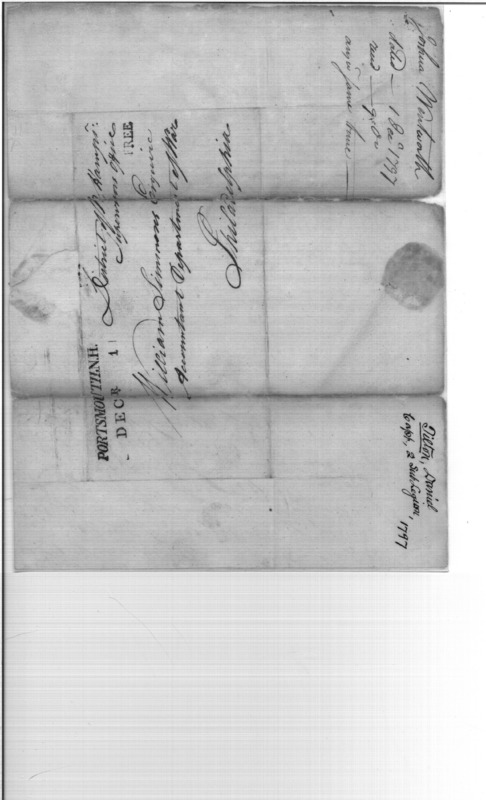 Joshua Wentworth
dated — 1 Dec 1797
recd — 9 do
ansd same time
PORTSMOUTH N.H.
DECR 1
District of N Hampr:
Supervisors Office
FREE
William Simmons Esquire
Accountant Department of War
Philadelphia
Tilton, Daniel
Capt, 2 Sub Legion, 1797